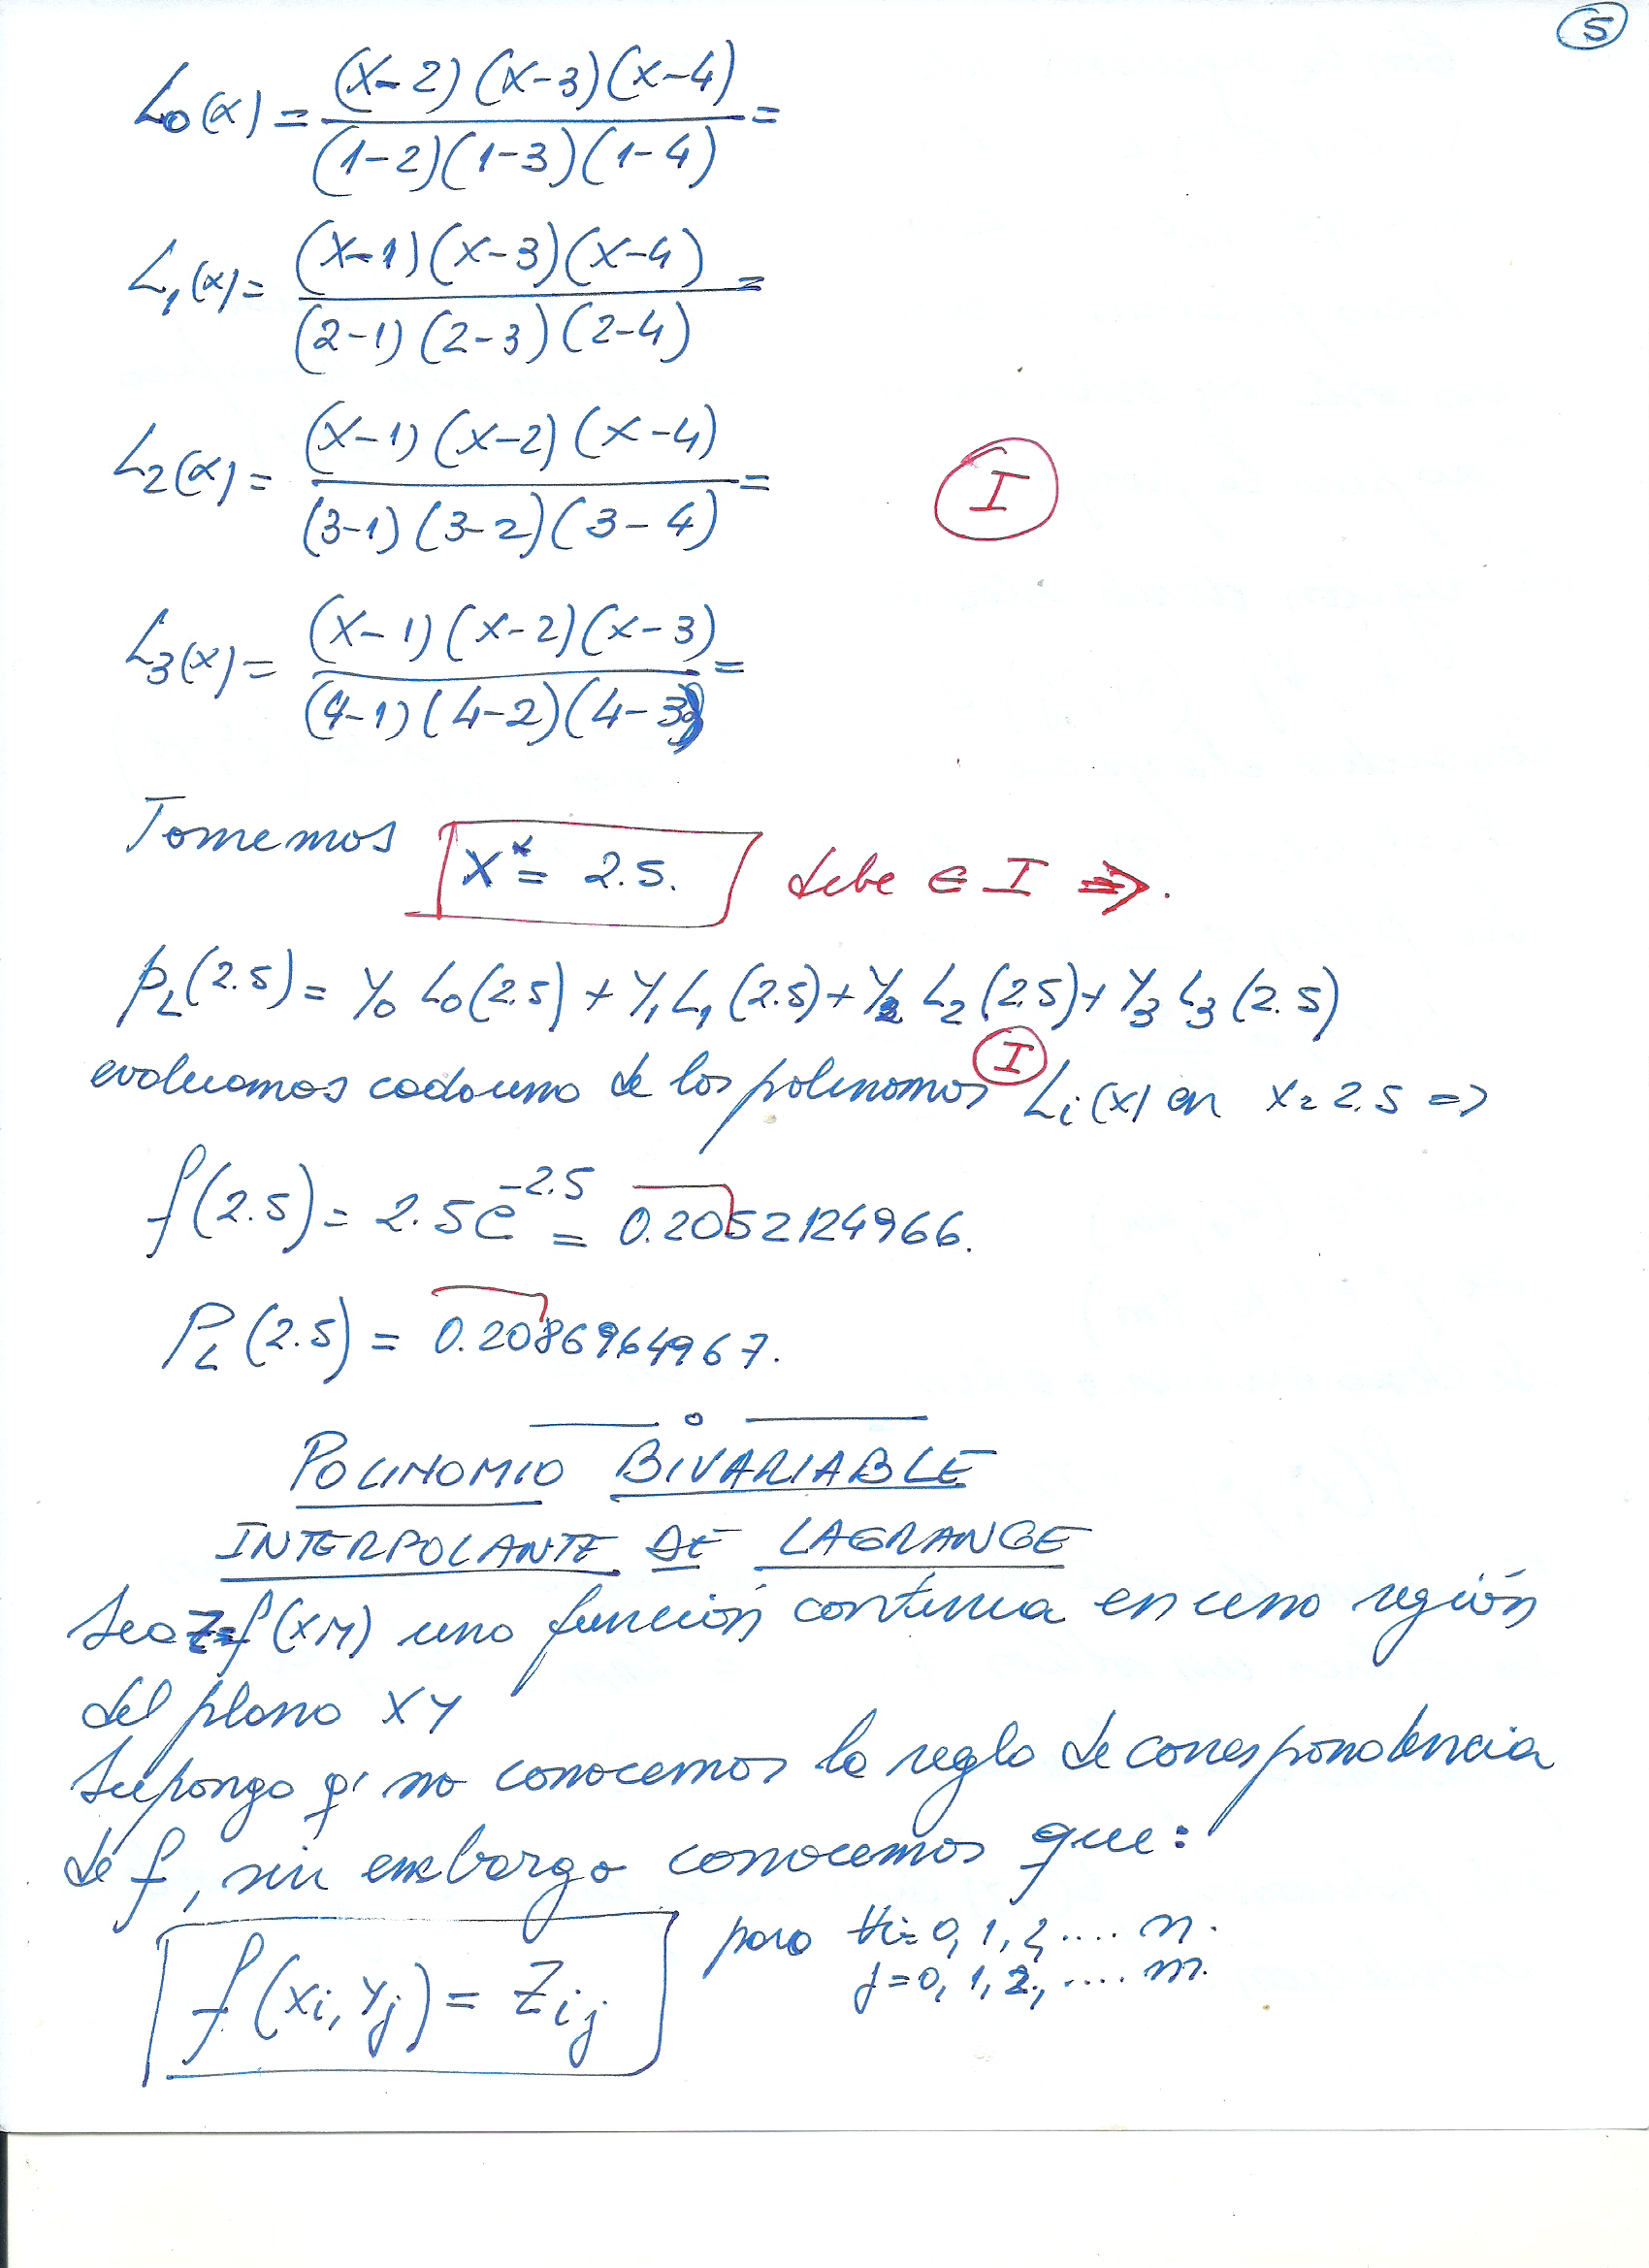 5
L₀(x) = (x-2)(x-3)(x-4) / (1-2)(1-3)(1-4) =
L₁(x) = (x-1)(x-3)(x-4) / (2-1)(2-3)(2-4) =
L₂(x) = (x-1)(x-2)(x-4) / (3-1)(3-2)(3-4) =
I
L₃(x) = (x-1)(x-2)(x-3) / (4-1)(4-2)(4-3) =
Tomemos X* = 2.5. debe ∈ I ⇒.
p_L(2.5) = Y₀ L₀(2.5) + Y₁ L₁(2.5) + Y₂ L₂(2.5) + Y₃ L₃(2.5)
evaluamos cada uno de los polinomos I Li(x) en x = 2.5 =>
f(2.5) = 2.5 e^-2.5 = 0.2052124966.
P_L(2.5) = 0.2086964967.
POLINOMIO BIVARIABLE
INTERPOLANTE DE LAGRANGE
Sea Z=f(x,y) una función continua en una región
del plano XY
Supongo q' no conocemos la regla de correspondencia
de f, sin embargo conocemos que:
f(xi, yj) = Zij para ∀i=0, 1, 2, .... n.
j=0, 1, 2, .... m.